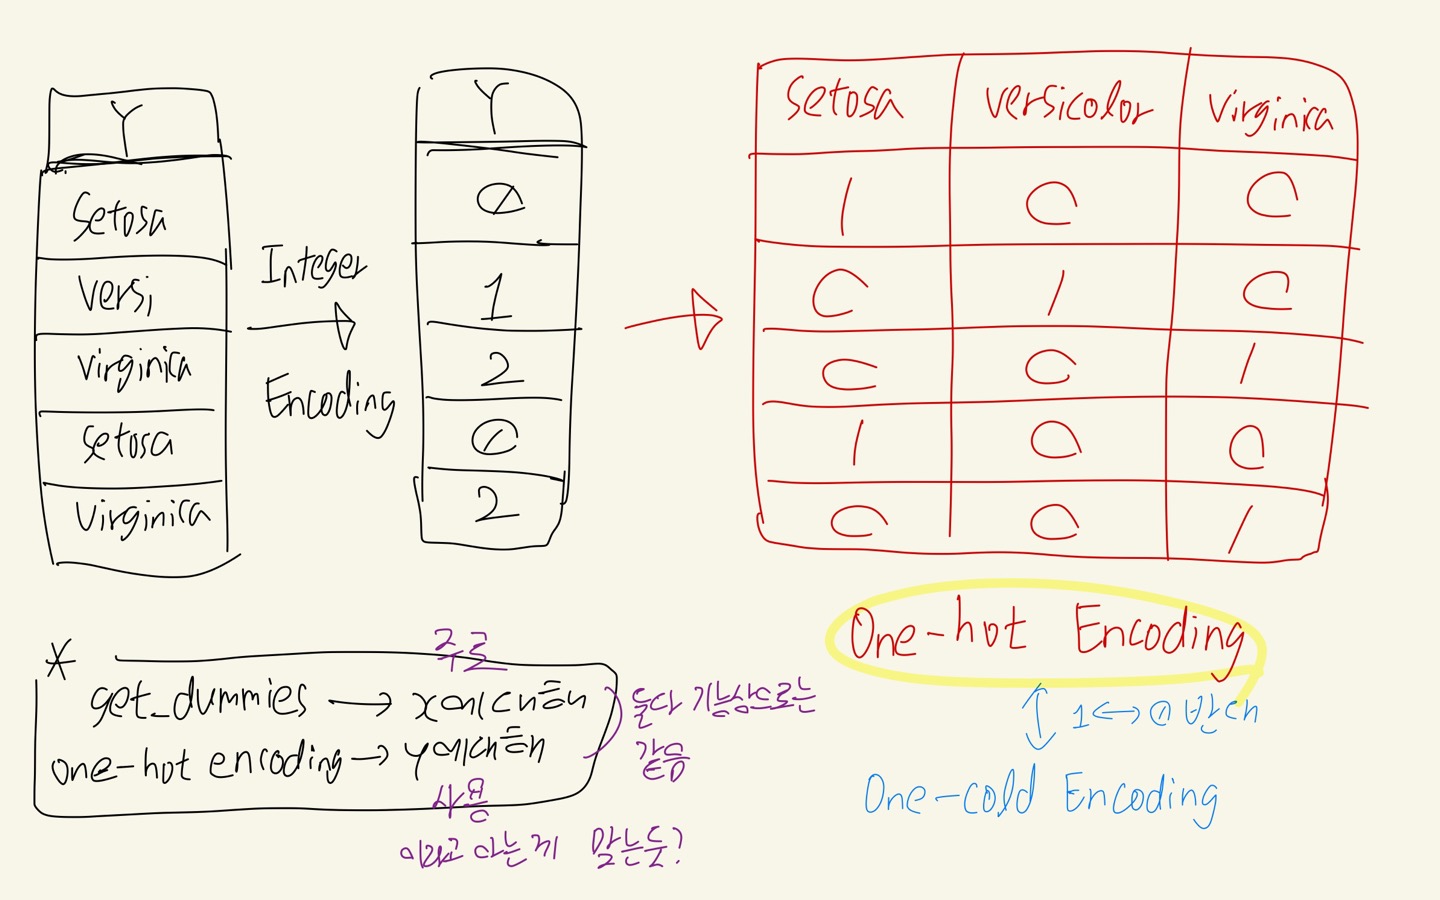 Y
Setosa
Versi
Virginica
Setosa
Virginica
Integer
Encoding
Y
0
1
2
0
2
Setosa Versicolor Virginica
1 0 0
0 1 0
0 0 1
1 0 0
0 0 1
One-hot Encoding
1↔0 반대
One-cold Encoding
*
주로
get_dummies → x에 대한
one-hot encoding → y에 대한
사용
둘다 기능상으로는
같음
이라고 아는게 맞는듯?